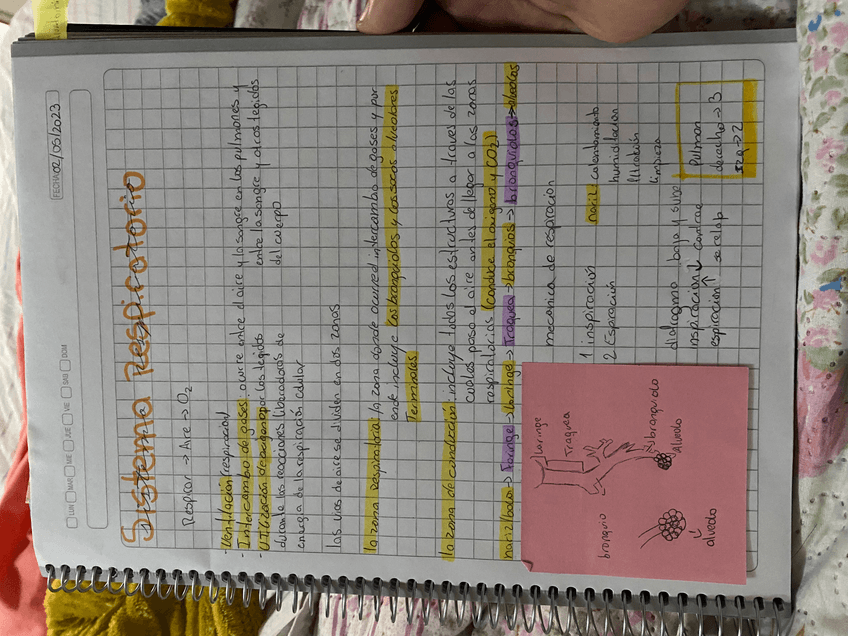 LUN MAR MIE JUE VIE SAB DOM
FECHA 02/05/2023
Sistema Respiratorio
Respirar → Aire → O2
- Ventilación (respiración)
- Intercambio de gases: ocurre entre el aire y la sangre en los pulmones y
entre la sangre y otros tejidos
del cuerpo
- Utilización de oxigeno por los tejidos
durante las reacciones liberadoras de
energia de la respiración celular
las vias de aire se dividen en dos zonas
la zona respiratoria: la zona donde ocurre el intercambio de gases y por
ende incluye los bronquiolos y los sacos alveolares
Terminales
la zona de conducción: incluye todas las estructuras a traves de las
cuales pasa el aire antes de llegar a las zonas
respiratorias (conduce el oxigeno y CO2)
nariz/boca → Faringe → laringe → Traquea → bronquios → bronquiolos → alveolos
mecanica de respiración
1 inspiración
2 Espiración
nariz: calentamiento
humidificacion
filtración
limpieza
diafragma baja y sube
inspiracion ↓ contrae
espiración ↑ se relaja
Pulmon
derecho → 3
izq → 2
Laringe
Traquea
bronquio
bronquiolo
Alveolo
alveolo